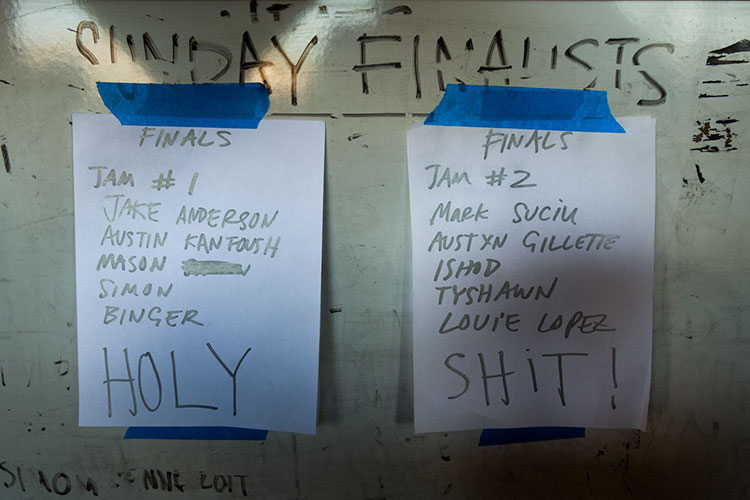 SUNDAY FINALISTS
FINALS
JAM #1
JAKE ANDERSON
AUSTIN KANFOUSH
MASON
SIMON
BINGER
HOLY
FINALS
JAM #2
MARK SUCIU
AUSTYN GILLETTE
ISHOD
TYSHAWN
LOUIE LOPEZ
SHIT!
SIMON